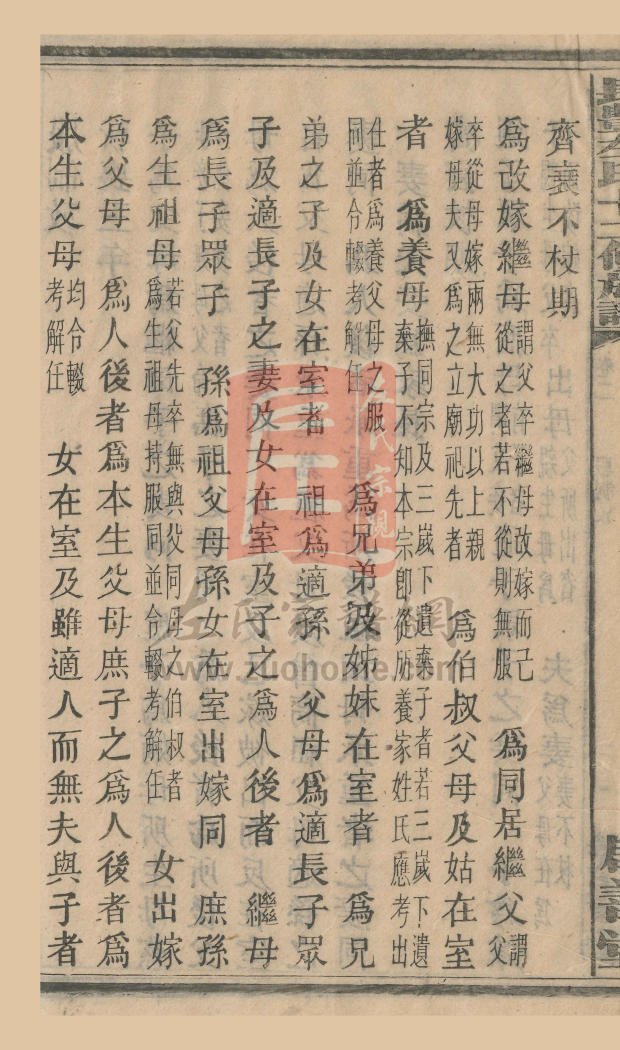 齊衰不杖期
爲改嫁繼母謂父卒繼母改嫁而己從之者若不從則無服 爲同居繼父謂父
卒從母嫁兩無大功以上親嫁母夫又爲之立廟祀先者 爲伯叔父母及姑在室
者 爲養母撫同宗及三歲下遺棄子者若三歲下遺棄子不知本宗即從所養家姓氏應考出
仕者爲養父母之服同並令輟考解任 爲兄弟及姊妹在室者 爲兄
弟之子及女在室者 祖爲適孫 父母爲適長子眾
子及適長子之妻及女在室及子之爲人後者 繼母
爲長子眾子 孫爲祖父母孫女在室出嫁同 庶孫
爲生祖母若父先卒無與父同母之伯叔者爲生祖母持服同並令輟考解任 女出嫁
爲父母 爲人後者爲本生父母庶子之爲人後者爲
本生父母均令輟考解任 女在室及雖適人而無夫與子者
左氏宗親
左氏家譜網
www.zuohome.com